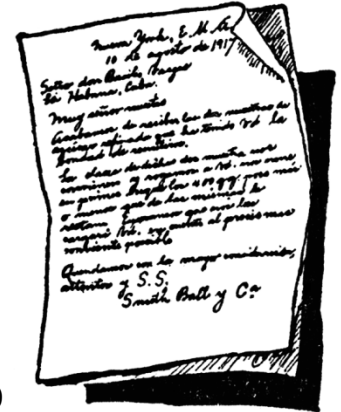 Nueva York, E. U. A.
10 de agosto de 1917
Señor don Basilio Vargas
La Habana, Cuba.
Muy señor nuestro
Acabamos de recibir las dos muestras de
azúcar refinado que ha tenido Vd. la
bondad de remitirnos.
La clase de dichas dos muestras nos
conviene y rogamos a Vd. nos remi
en primer 400 qq. poco más
o menos que de las mismas le
restan. Esperamos que nos las
cargará Vd. al precio más
posible
Quedamos con la mayor consideración,
attentos y S. S.
Smith Ball y Cª